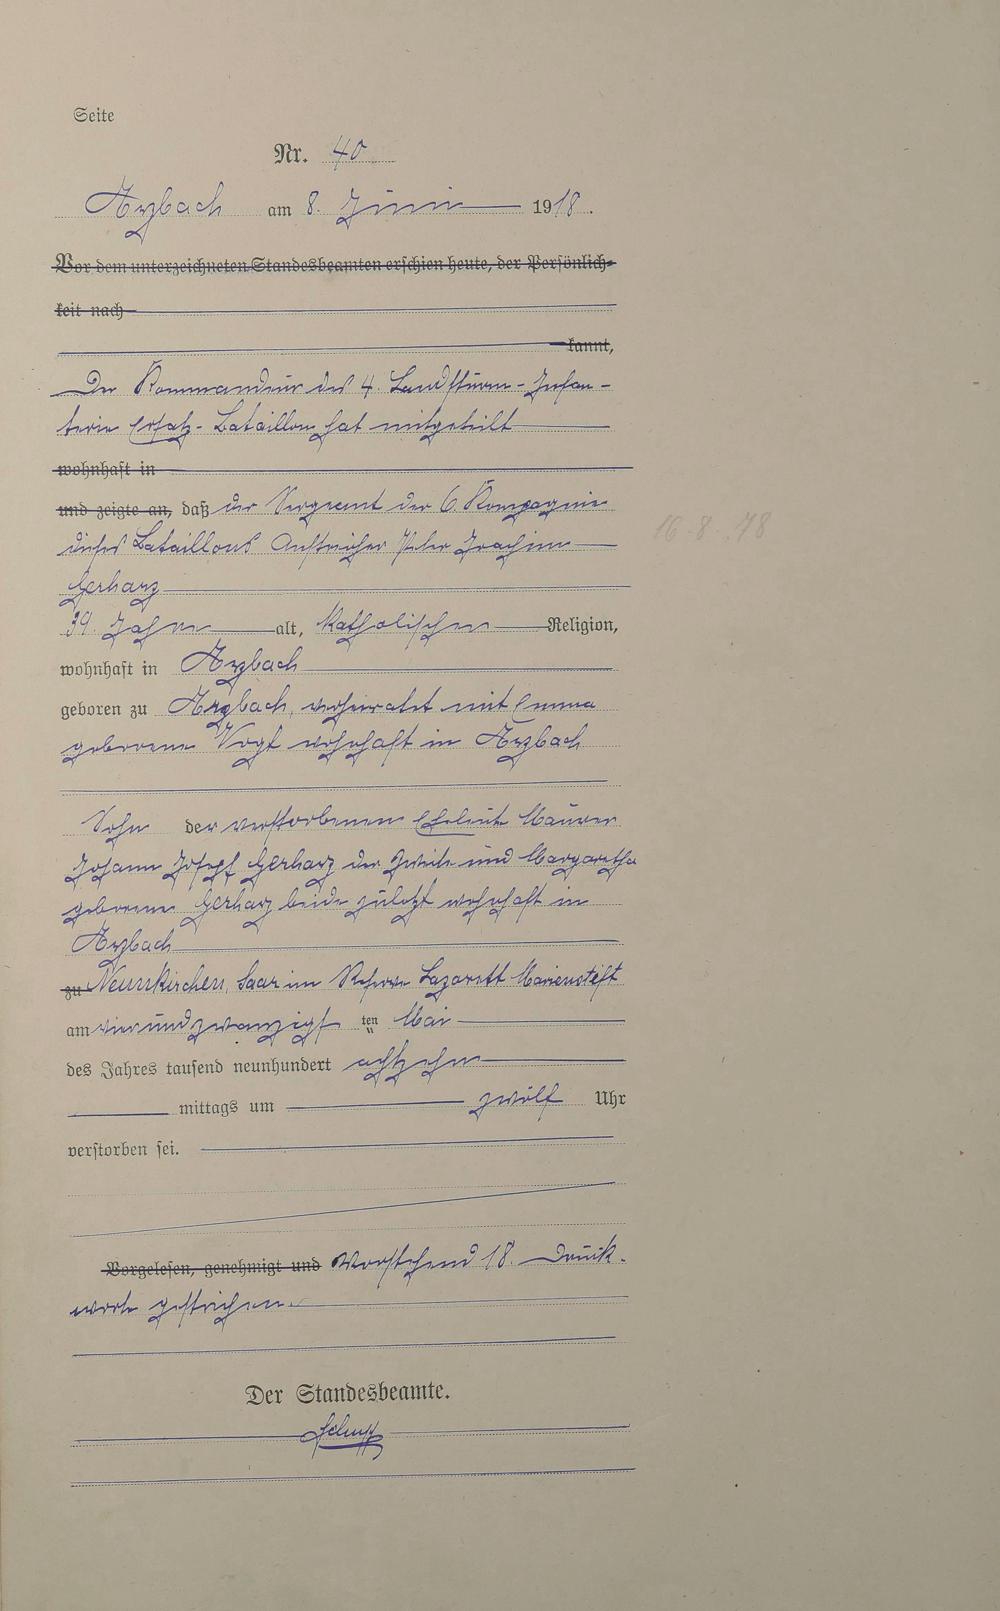 Seite
Nr. 40
Arzbach am 8. Juni 1918.
Vor dem unterzeichneten Standesbeamten erschien heute, der Persönlich-
keit nach
kannt,
Der Kommandeur des 4. Landsturm-Infan-
terie Ersatz-Bataillon hat mitgeteilt
wohnhaft in
und zeigte an, daß der Sergeant der 6. Kompagnie
dieses Bataillons Anstreicher Peter Joachim
Gerharz
39 Jahre alt, katholischen Religion,
wohnhaft in Arzbach
geboren zu Arzbach, verheiratet mit Emma
geborene Vogt wohnhaft in Arzbach
Sohn der verstorbenen Eheleute Maurer
Johann Josef Gerharz der Zweite und Margaretha
geborene Gerharz beide zuletzt wohnhaft in
Arzbach
zu Neunkirchen, Saar im Reserve Lazarett Marienstift
am vierundzwanzigsten Mai
des Jahres tausend neunhundert achtzehn
mittags um zwölf Uhr
verstorben sei.
Vorgelesen, genehmigt und Vorstehend 18. Druck-
worte gestrichen.
Der Standesbeamte.
16-8-.78